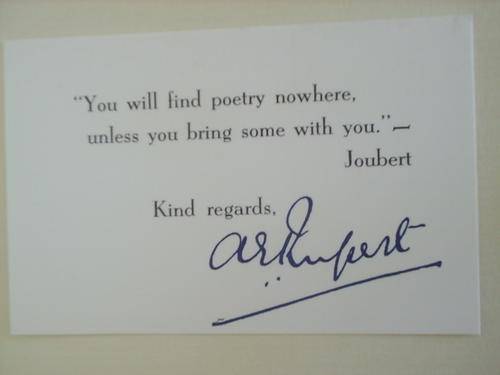 “You will find poetry nowhere,
unless you bring some with you.”—
Joubert
Kind regards,
AERupert